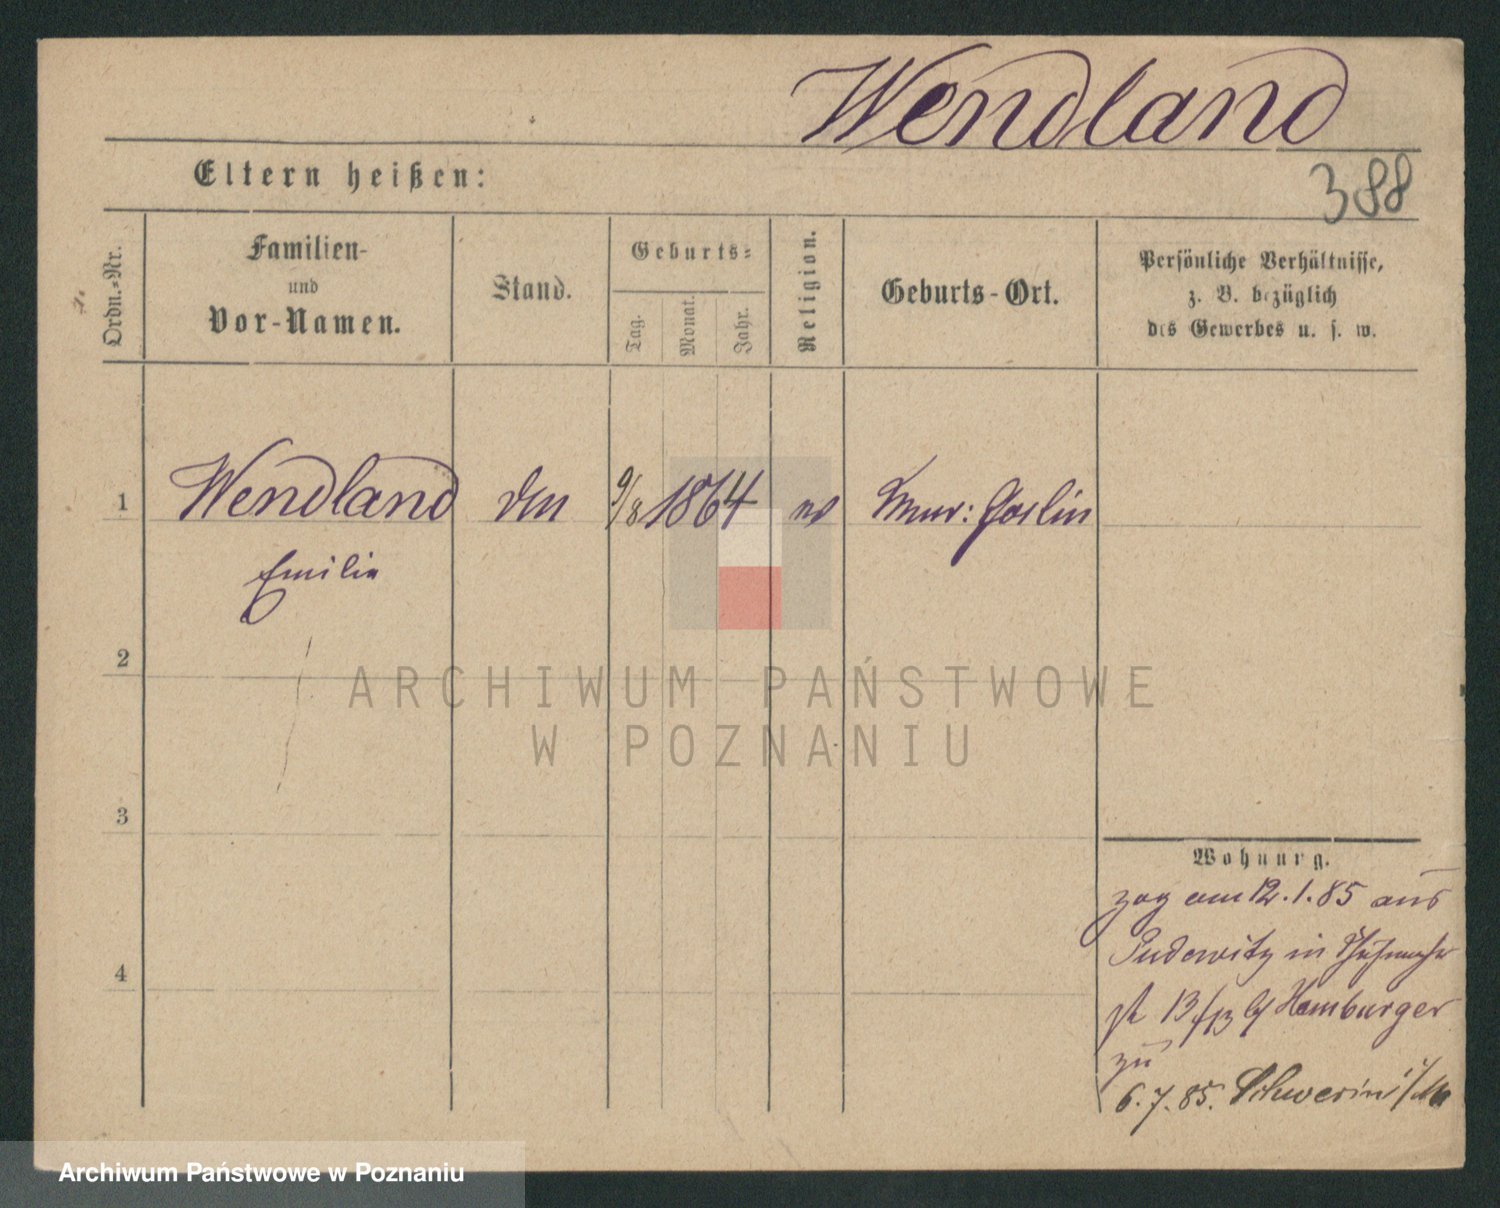 Wendland
388
Eltern heißen:
Ordn.-Nr.
Familien-
und
Vor-Namen.
Stand.
Geburts-
Tag.
Monat.
Jahr.
Religion.
Geburts-Ort.
Persönliche Verhältnisse,
z. B. bezüglich
des Gewerbes u. s. w.
1 Wendland 9/8 1864 ev Mur: Goslin
Emilie
2
ARCHIWUM PAŃSTWOWE
W POZNANIU
3
Wohnung.
zog am 12.1.85 aus
Pudewitz in
4
13 Hamburger
zu
6.7.85. Schwerin i/M
Archiwum Państwowe w Poznaniu